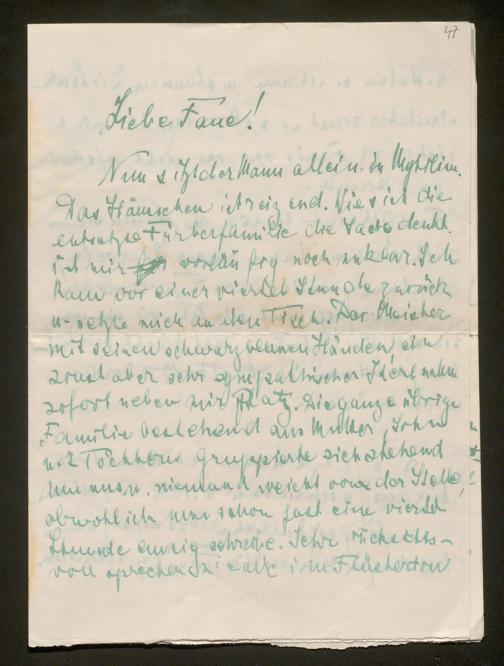 47
Liebe Fane!
Nun sitzt der Mann allein in
Das Häuschen ist reizend. Wie sich die
entsetzte Färberfamilie die Sache denkt
ist mir vorläufig noch unklar. Ich
kam vor einer viertel Stunde zurück
u. setzte mich an den Tisch. Der Meister
mit seinen schwarzblauen Händen, ein
sonst aber sehr sympathischer Kerl nahm
sofort neben mir Platz. Die ganze übrige
Familie bestehend aus Mutter, Sohn
u. 2 Töchtern gruppierte sich stehend
um uns u. niemand weicht von der Stelle,
obwohl ich nun schon fast eine viertel
Stunde emsig schreibe. Sehr rücksichts-
voll sprechen sie alle im Flüsterton